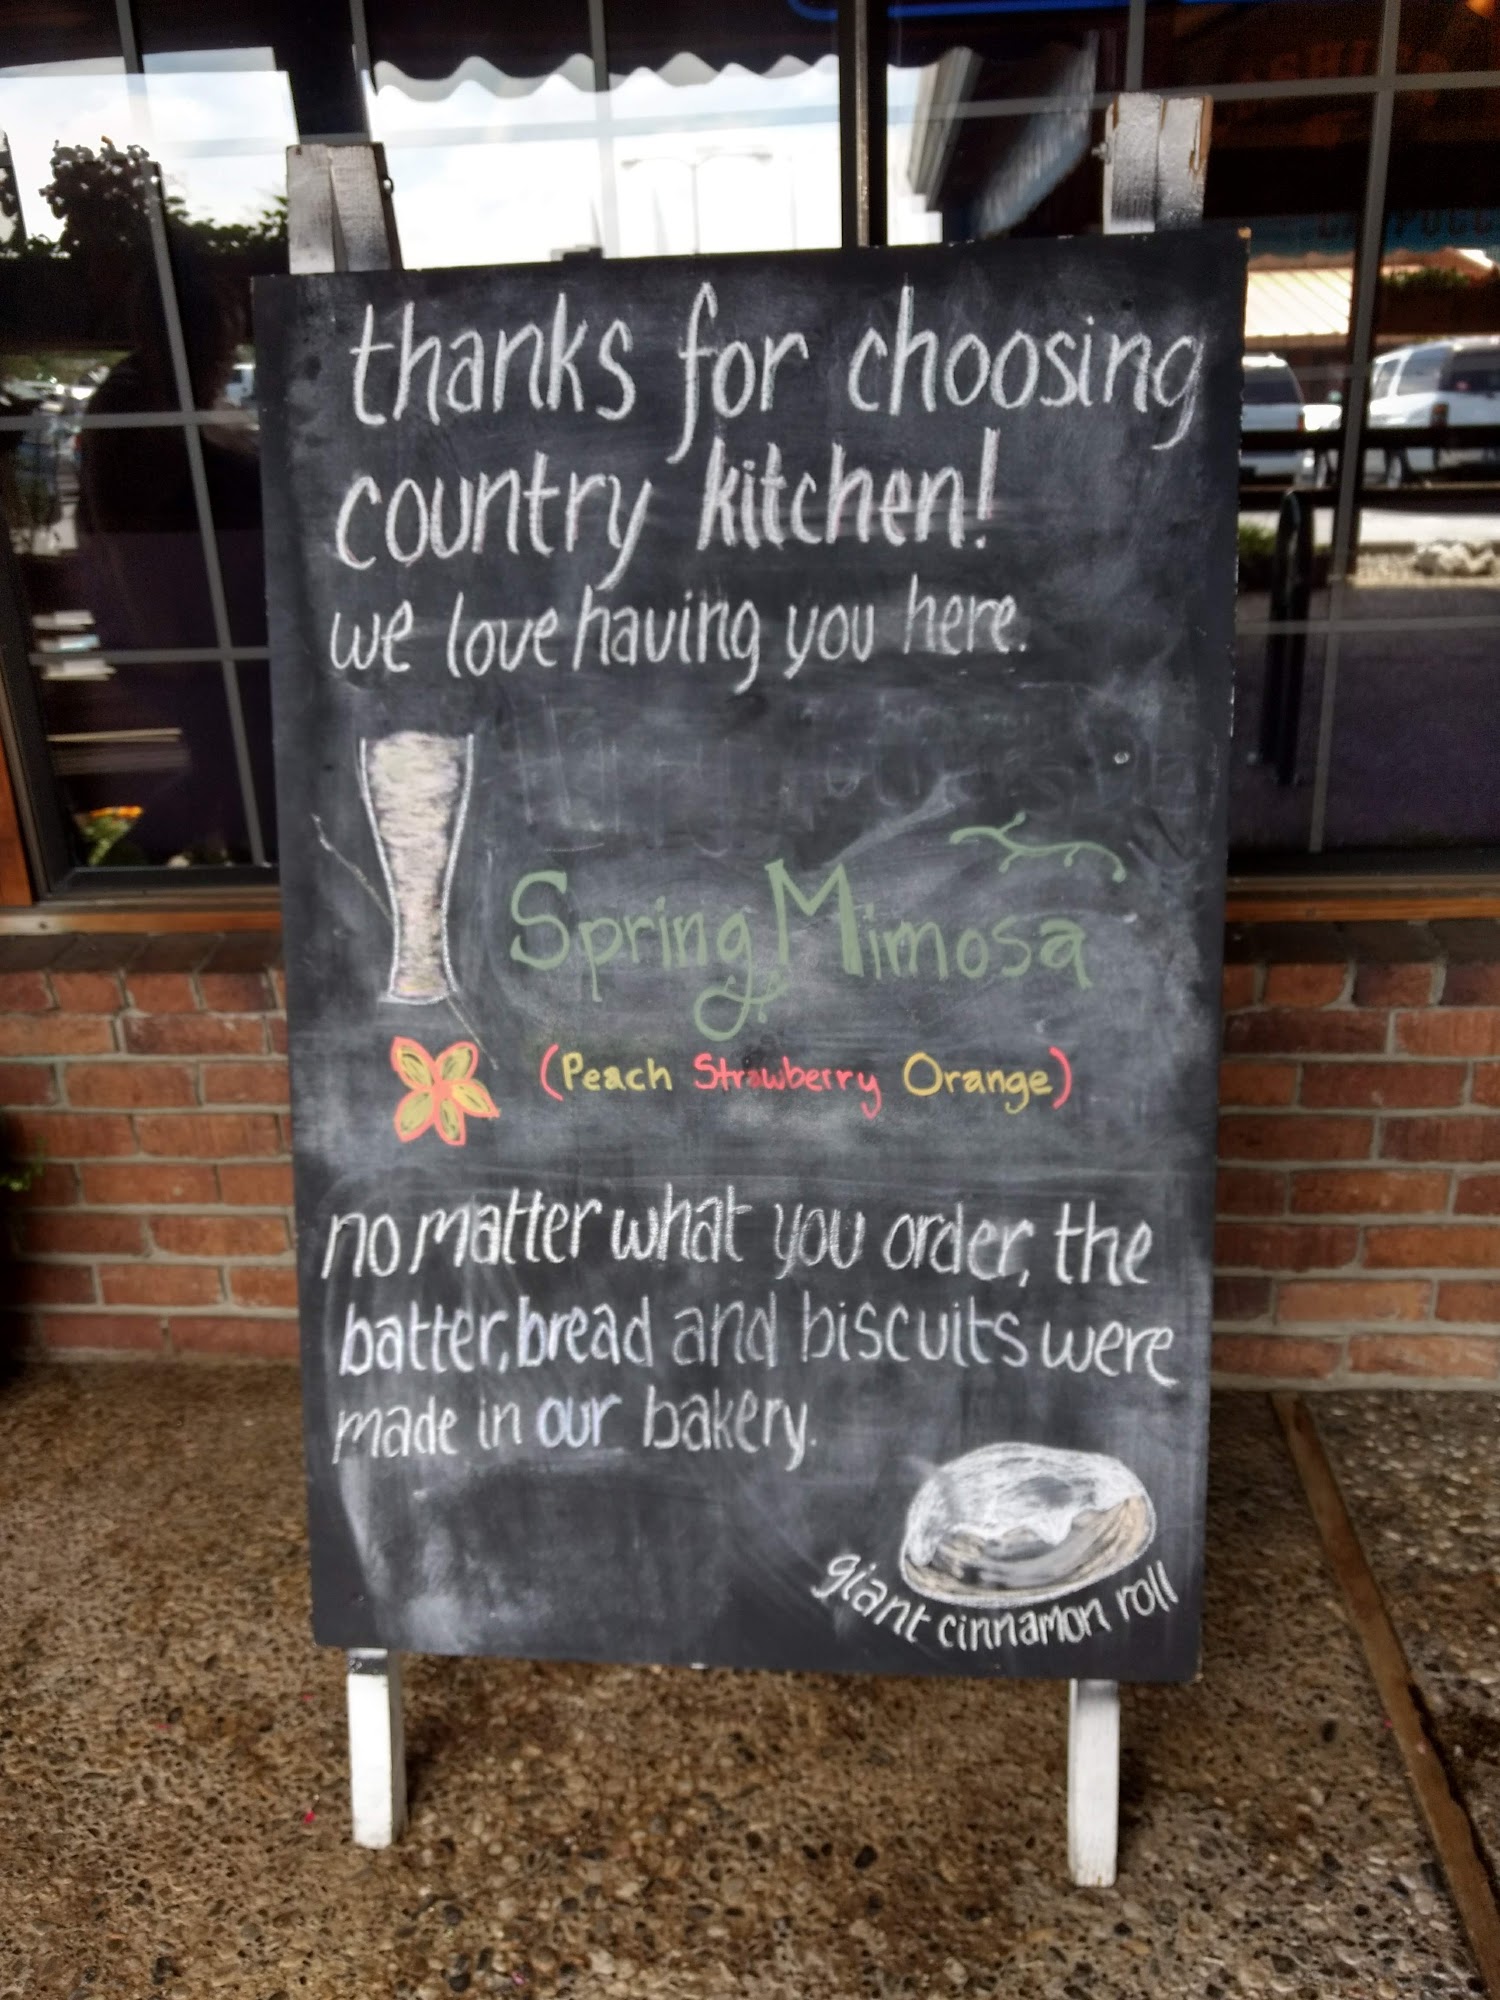 thanks for choosing
country kitchen!
we love having you here.
Spring Mimosa
(Peach Strawberry Orange)
no matter what you order, the
batter, bread and biscuits were
made in our bakery.
giant cinnamon roll